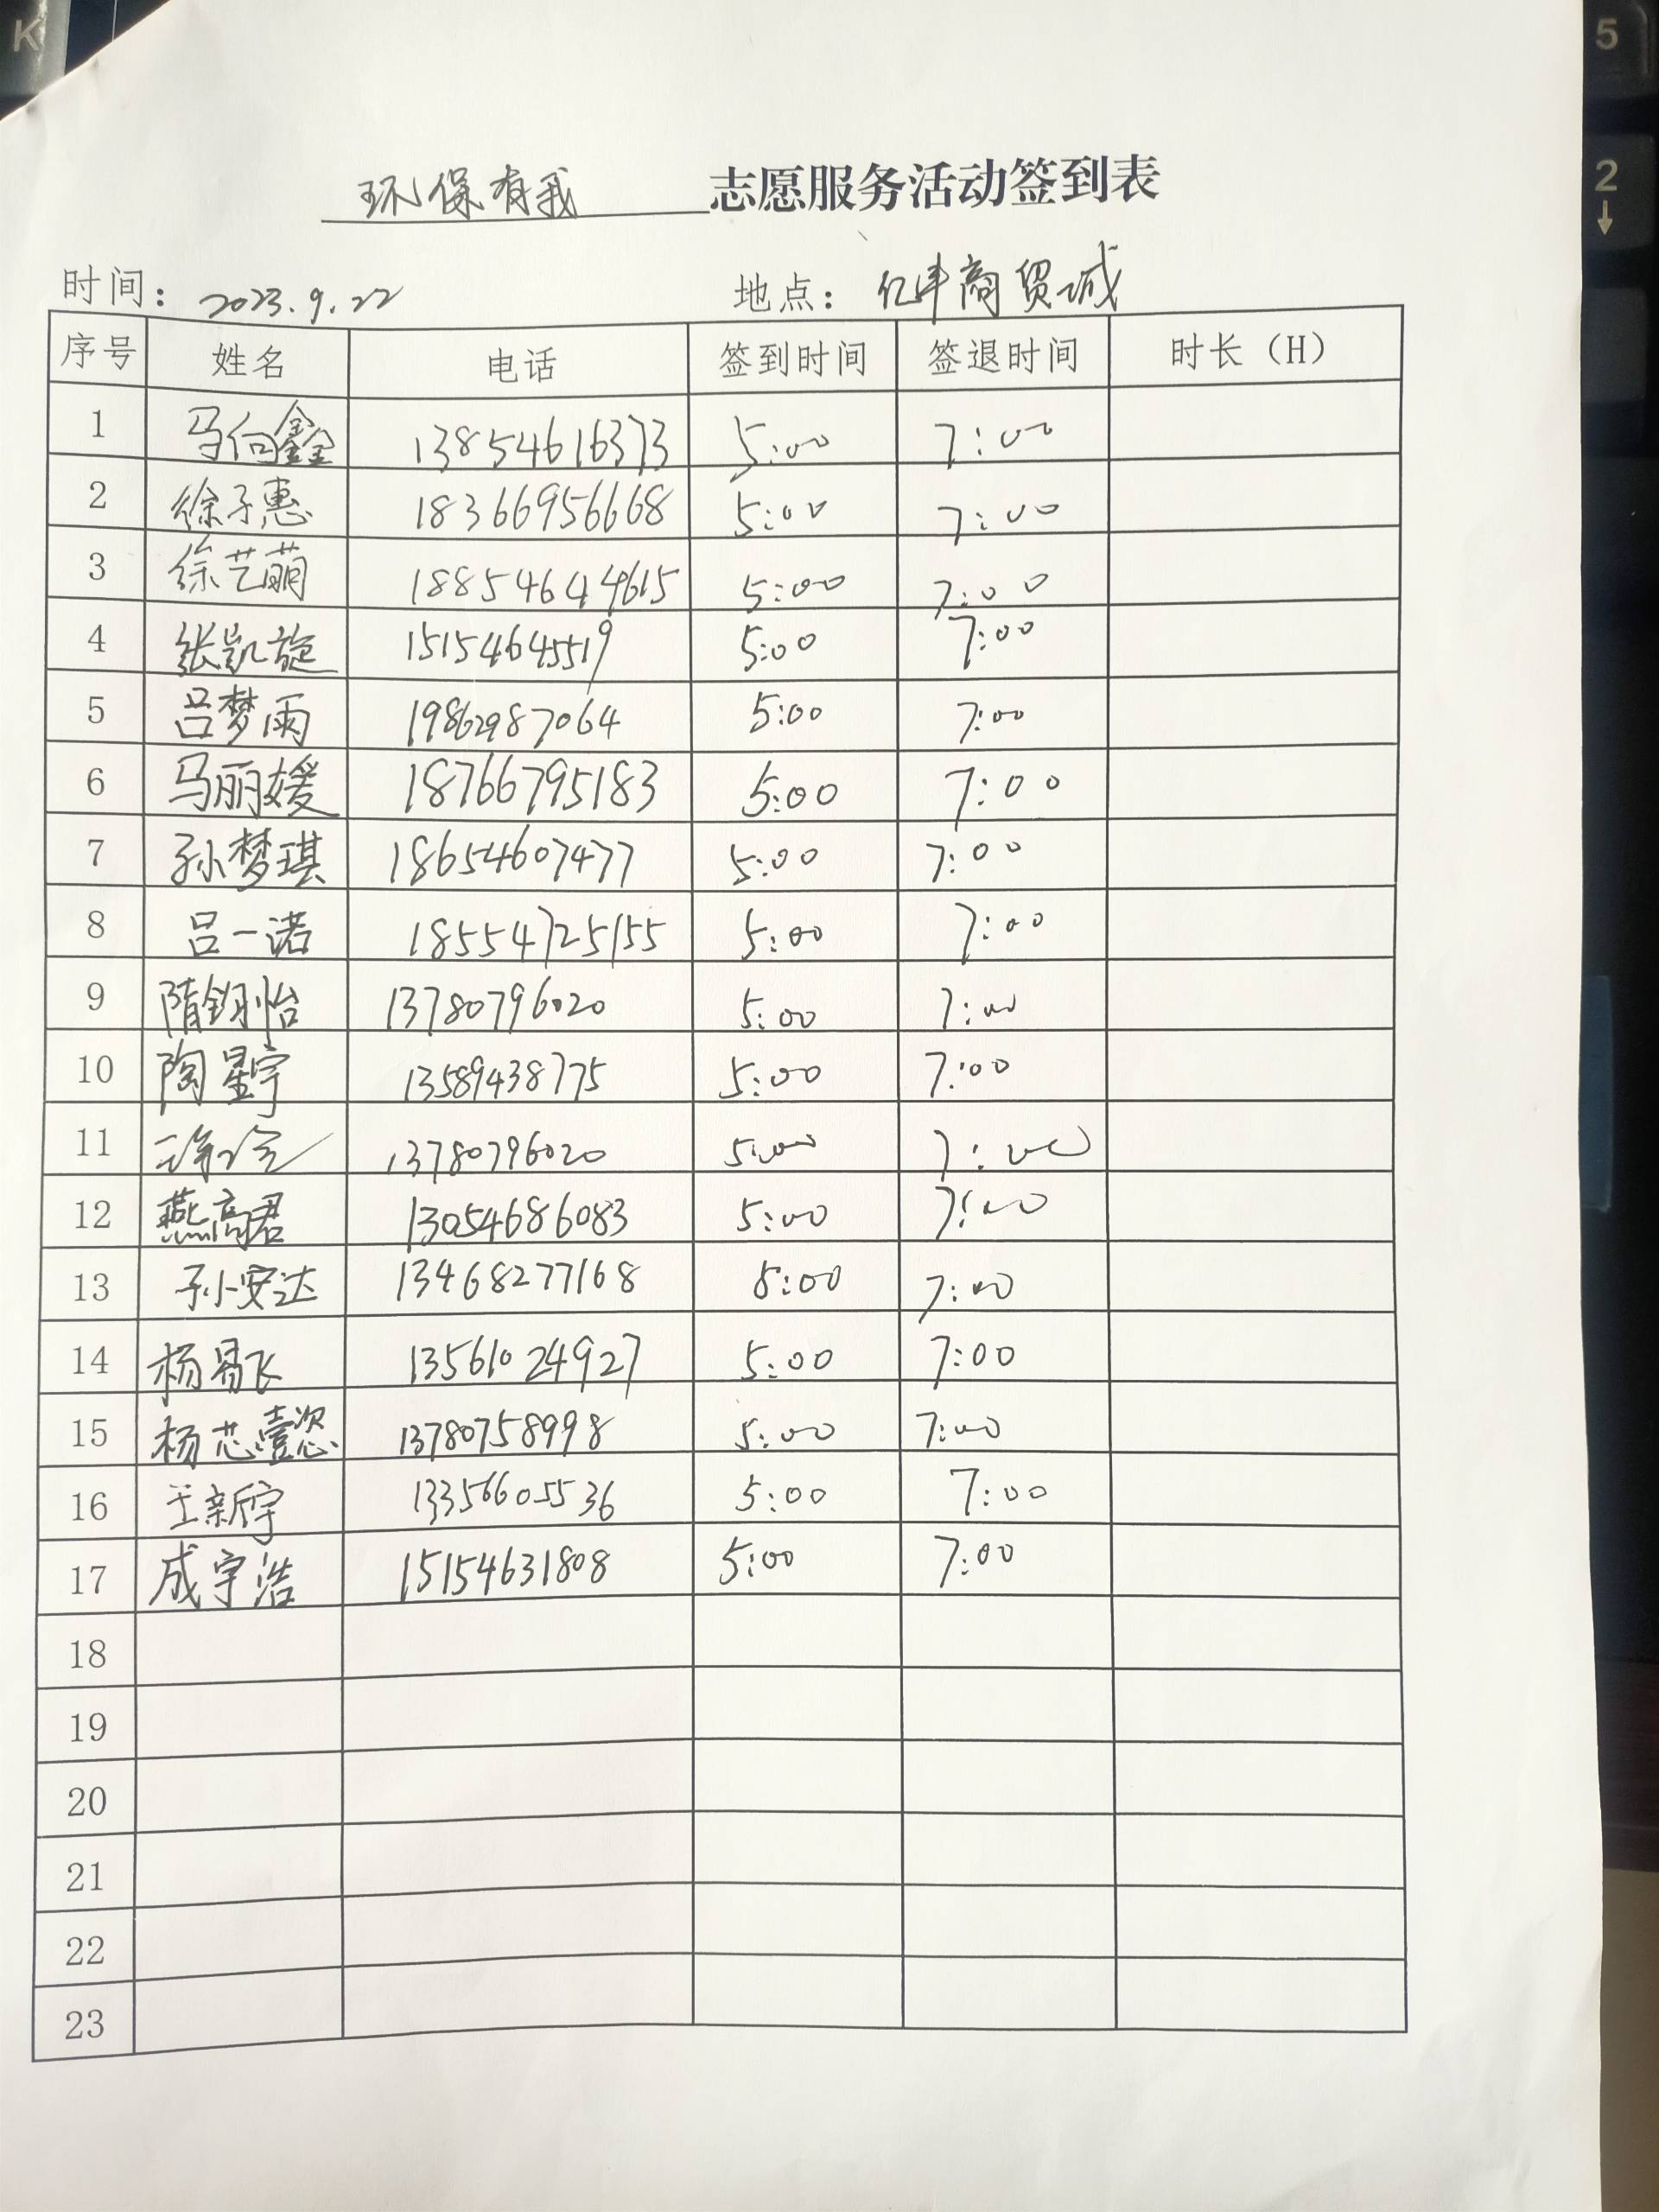 K
5
2
↓
环保有我 志愿服务活动签到表
时间: 2023.9.22 地点: 亿丰商贸城
序号 姓名 电话 签到时间 签退时间 时长(H)
1 马向鑫 13854616373 5:00 7:00
2 徐子惠 18366956668 5:00 7:00
3 徐艺萌 18854644615 5:00 7:00
4 张凯旋 15154645519 5:00 7:00
5 吕梦雨 19862987064 5:00 7:00
6 马丽媛 18766795183 5:00 7:00
7 孙梦琪 18654607477 5:00 7:00
8 吕一诺 18554725155 5:00 7:00
9 隋钥怡 13780796020 5:00 7:00
10 陶星宇 13589438775 5:00 7:00
11 13780796020 5:00 7:00
12 燕高君 13054686083 5:00 7:00
13 孙安达 13468277168 5:00 7:00
14 杨易飞 13561024927 5:00 7:00
15 杨芯懿 13780758998 5:00 7:00
16 王新宇 13356605536 5:00 7:00
17 成宇浩 15154631808 5:00 7:00
18
19
20
21
22
23